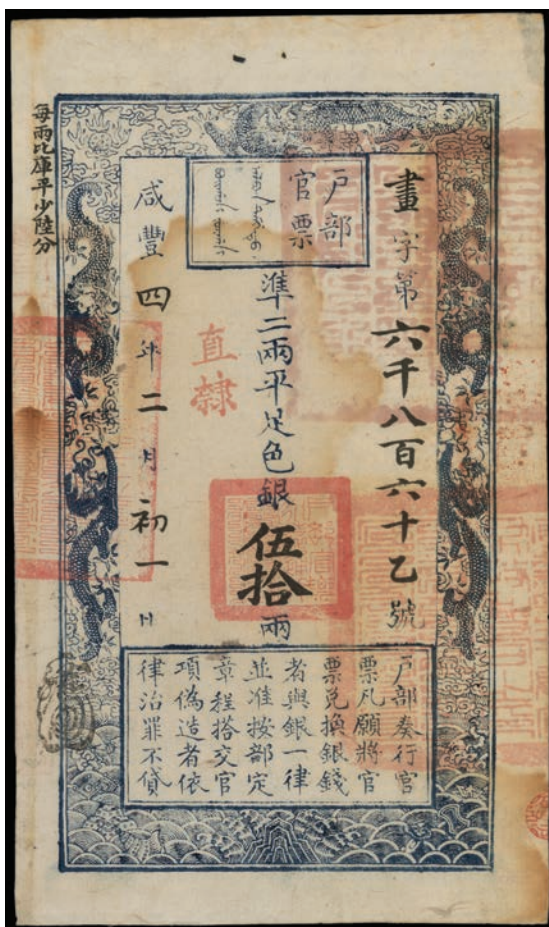 每兩比庫平少陸分
戶部
官票
畫字第六千八百六十乙號
準二兩平足色銀伍拾兩
直隸
咸豐四年二月初一日
戶部奏行官
票凡願將官
票兌換銀錢
者與銀一律
並准按部定
章程搭交官
項偽造者依
律治罪不貸